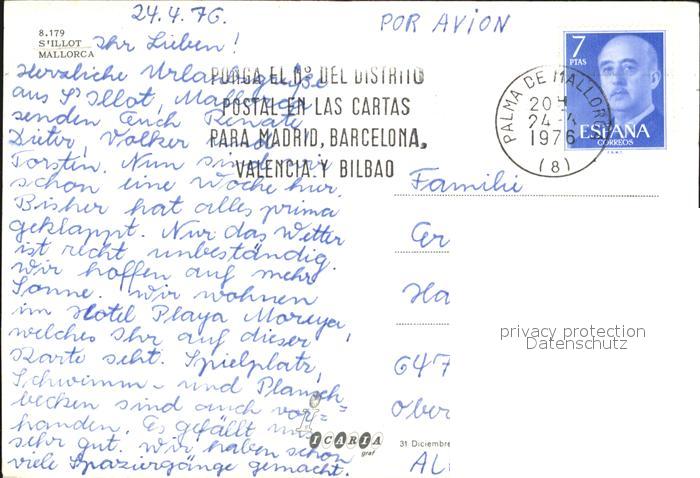 24.4.76.
POR AVION
8.179
S'ILLOT
MALLORCA
Ihr Lieben!
Herzliche Urlaubsgrüße
aus S'Illot, Mallorca
senden Euch Renate
Dieter, Volker und
Torsten. Nun sind wir
schon eine Woche hier.
Bisher hat alles prima
geklappt. Nur das Wetter
ist recht unbeständig.
Wir hoffen auf mehr
Sonne. Wir wohnen
im Hotel Playa Moreya,
welches Ihr auf dieser
Karte seht. Spielplatz,
Schwimm- und Plansch=
becken sind auch vor=
handen. Es gefällt uns
sehr gut. Wir haben schon
viele Spaziergänge gemacht.
PONGA EL Nº DEL DISTRITO
POSTAL EN LAS CARTAS
PARA MADRID, BARCELONA,
VALENCIA Y BILBAO
PALMA DE MALLORCA
20H
24
1976
(8)
7
PTAS
ESPAÑA
CORREOS
Familie
Ha
647
Ober
AL
ICARIA
graf
31 Diciembre
privacy protection
Datenschutz